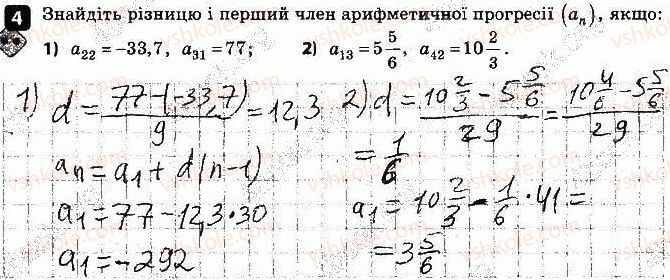 4 Знайдіть різницю і перший член арифметичної прогресії (aₙ), якщо:
1) a₂₂ = −33,7, a₃₁ = 77; 2) a₁₃ = 5 5/6, a₄₂ = 10 2/3.
1) d = (77 − (−33,7))/9 = 12,3
aₙ = a₁ + d(n−1)
a₁ = 77 − 12,3 • 30
a₁ = −292
2) d = (10 2/3 − 5 5/6)/29 = (10 4/6 − 5 5/6)/29
= 1/6
a₁ = 10 2/3 − 1/6 • 41 =
= 3 5/6